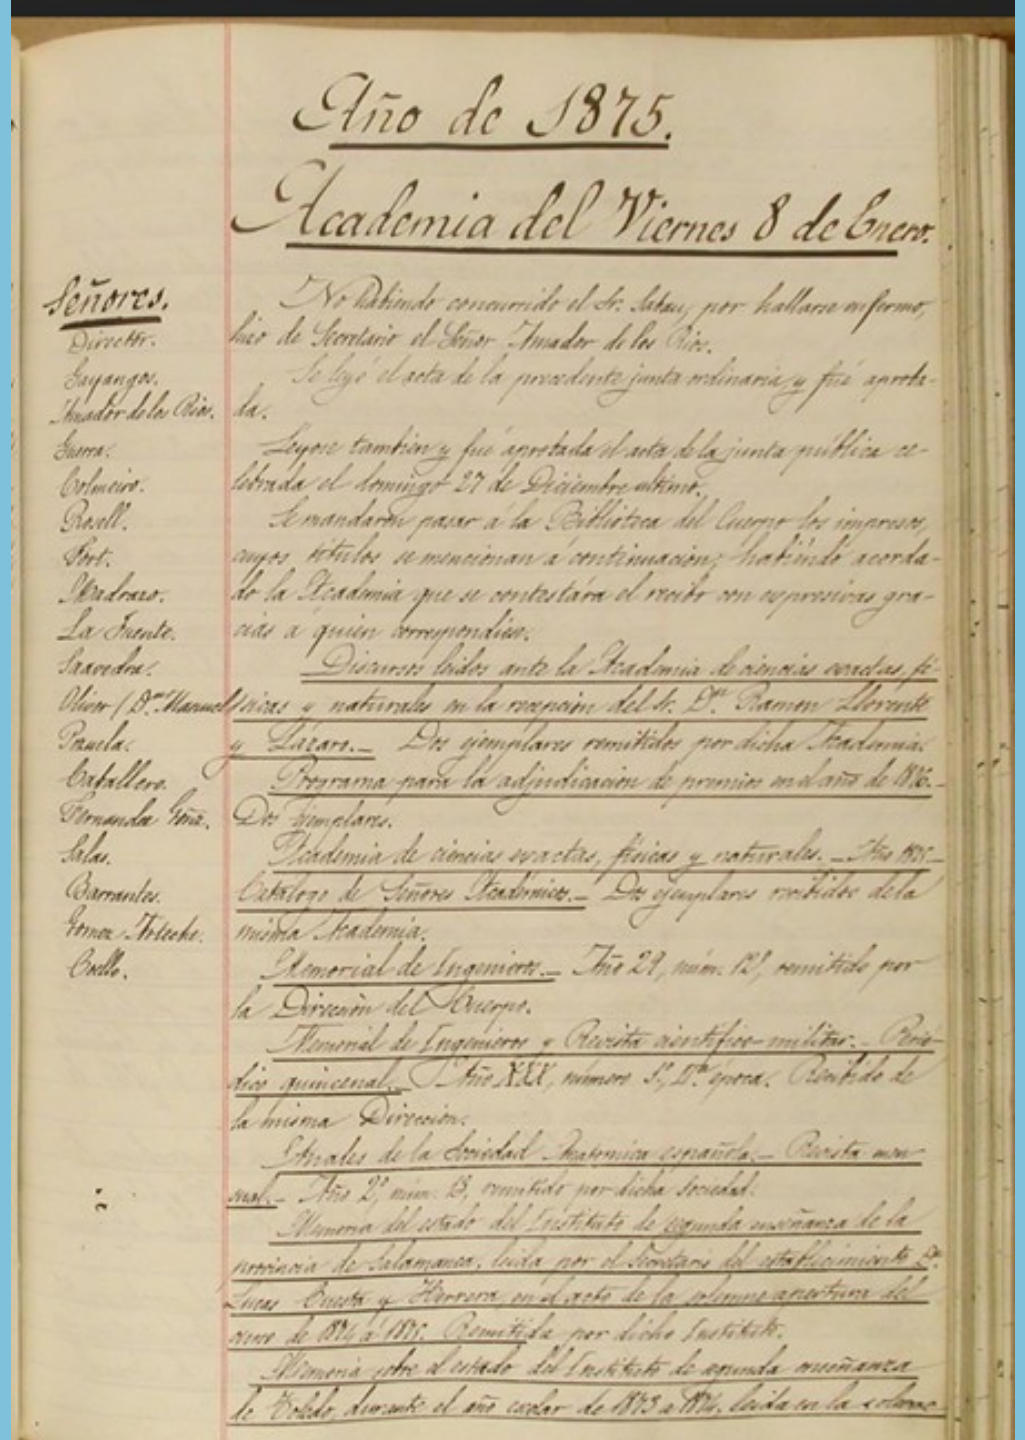 Año de 1875.
Academia del Viernes 8 de Enero.
Señores.
Director.
Gayangos.
Amador de los Rios.
Guerra.
Colmeiro.
Rosell.
Fort.
Madrazo.
La Fuente.
Saavedra.
Oliver (Dn. Manuel)
Pezuela.
Caballero.
Fernandez Gonz.
Salas.
Barrantes.
Gomez Arteche.
Coello.
No habiendo concurrido el Sr. Sabau, por hallarse enfermo,
hizo de Secretario el Señor Amador de los Rios.
Se leyó el acta de la precedente junta ordinaria y fué aproba-
da.
Leyose tambien y fué aprobada el acta de la junta pública ce-
lebrada el domingo 27 de Diciembre último.
Se mandaron pasar á la Biblioteca del Cuerpo los impresos,
cuyos títulos se mencionan á continuacion; habiendo acorda-
do la Academia que se contestára el recibo con expresivas gra-
cias á quien correspondiese.
Discursos leidos ante la Academia de ciencias exactas, fí-
sicas y naturales en la recepcion del Sr. Dn. Ramon Llorente
y Lázaro.— Dos ejemplares remitidos por dicha Academia.
Programa para la adjudicacion de premios en el año de 1876.—
Dos ejemplares.
Academia de ciencias exactas, físicas y naturales.— Año 1875—
Catálogo de Señores Académicos.— Dos ejemplares recibidos de la
misma Academia.
Memorial de Ingenieros.— Año 29, núm. 12, remitido por
la Direccion del Cuerpo.
Memorial de Ingenieros y Revista científico-militar.— Perió-
dico quincenal.— Año XXX, número 1º, época. Recibido de
la misma Direccion.
Anales de la Sociedad Anatómica española.— Revista men-
sual.— Año 2º, núm. 13, remitido por dicha Sociedad.
Memoria del estado del Instituto de segunda enseñanza de la
provincia de Salamanca, leida por el Secretario del establecimiento Dn.
Lucas Cuesta y Herrera, en el acto de la solemne apertura del
curso de 1874 á 1875. Remitida por dicho Instituto.
Memoria sobre el estado del Instituto de segunda enseñanza
de Toledo, durante el año escolar de 1873 a 1874, leida en la solemne